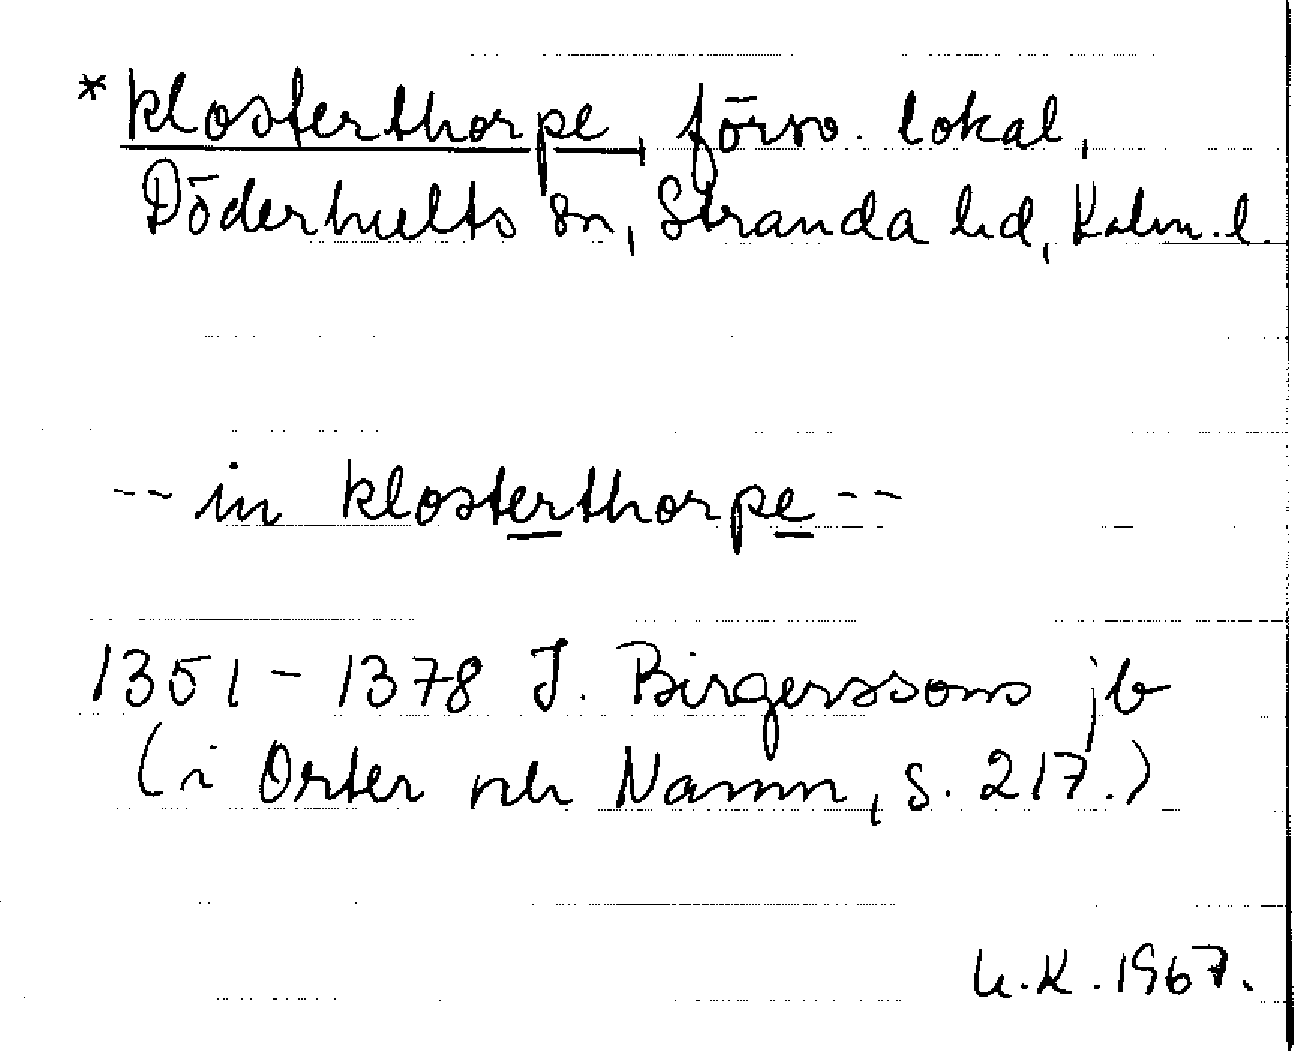 * klosterthorpe, försv. lokal,
Döderhults sn, Stranda hd, Kalm. l.
-- in klosterthorpe --
1351 - 1378 J. Birgerssons jb
(i Orter och Namn, s. 217.)
U.K. 1967.